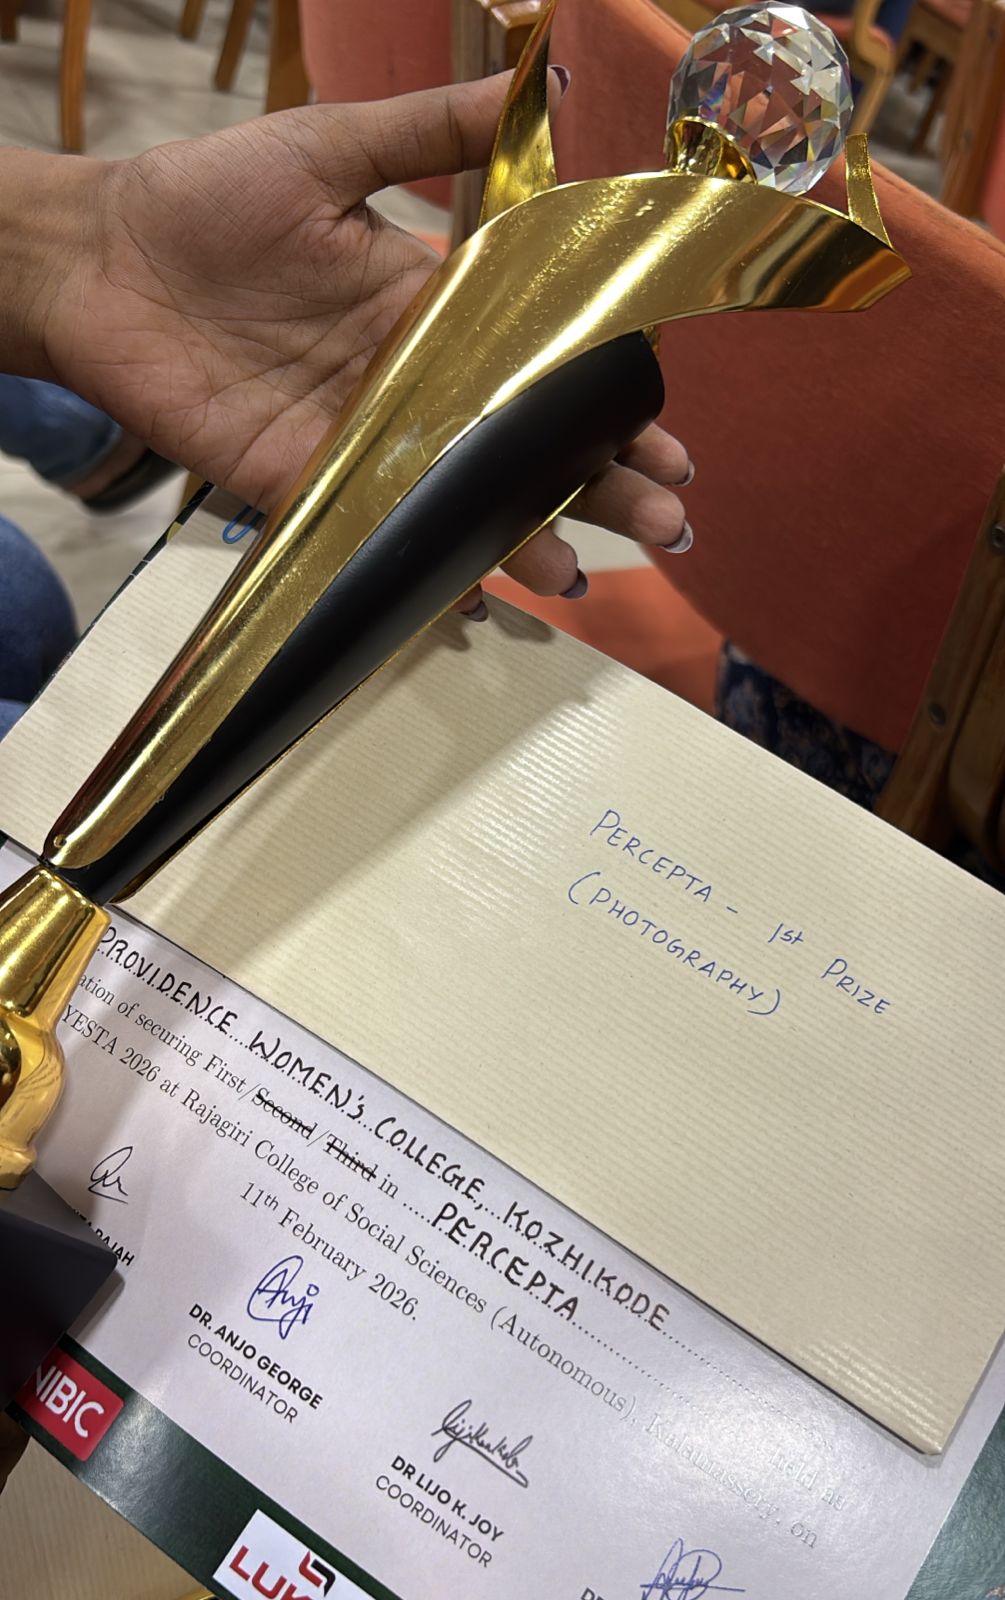 PERCEPTA - 1st PRIZE
(PHOTOGRAPHY)
PROVIDENCE WOMEN'S COLLEGE, KOZHIKODE
ation of securing First/Second/Third in ..... PERCEPTA ..... held at
YESTA 2026 at Rajagiri College of Social Sciences (Autonomous), Kalamassery, on
11th February 2026.
RAJAH
DR. ANJO GEORGE
COORDINATOR
DR LIJO K. JOY
COORDINATOR
NIBIC